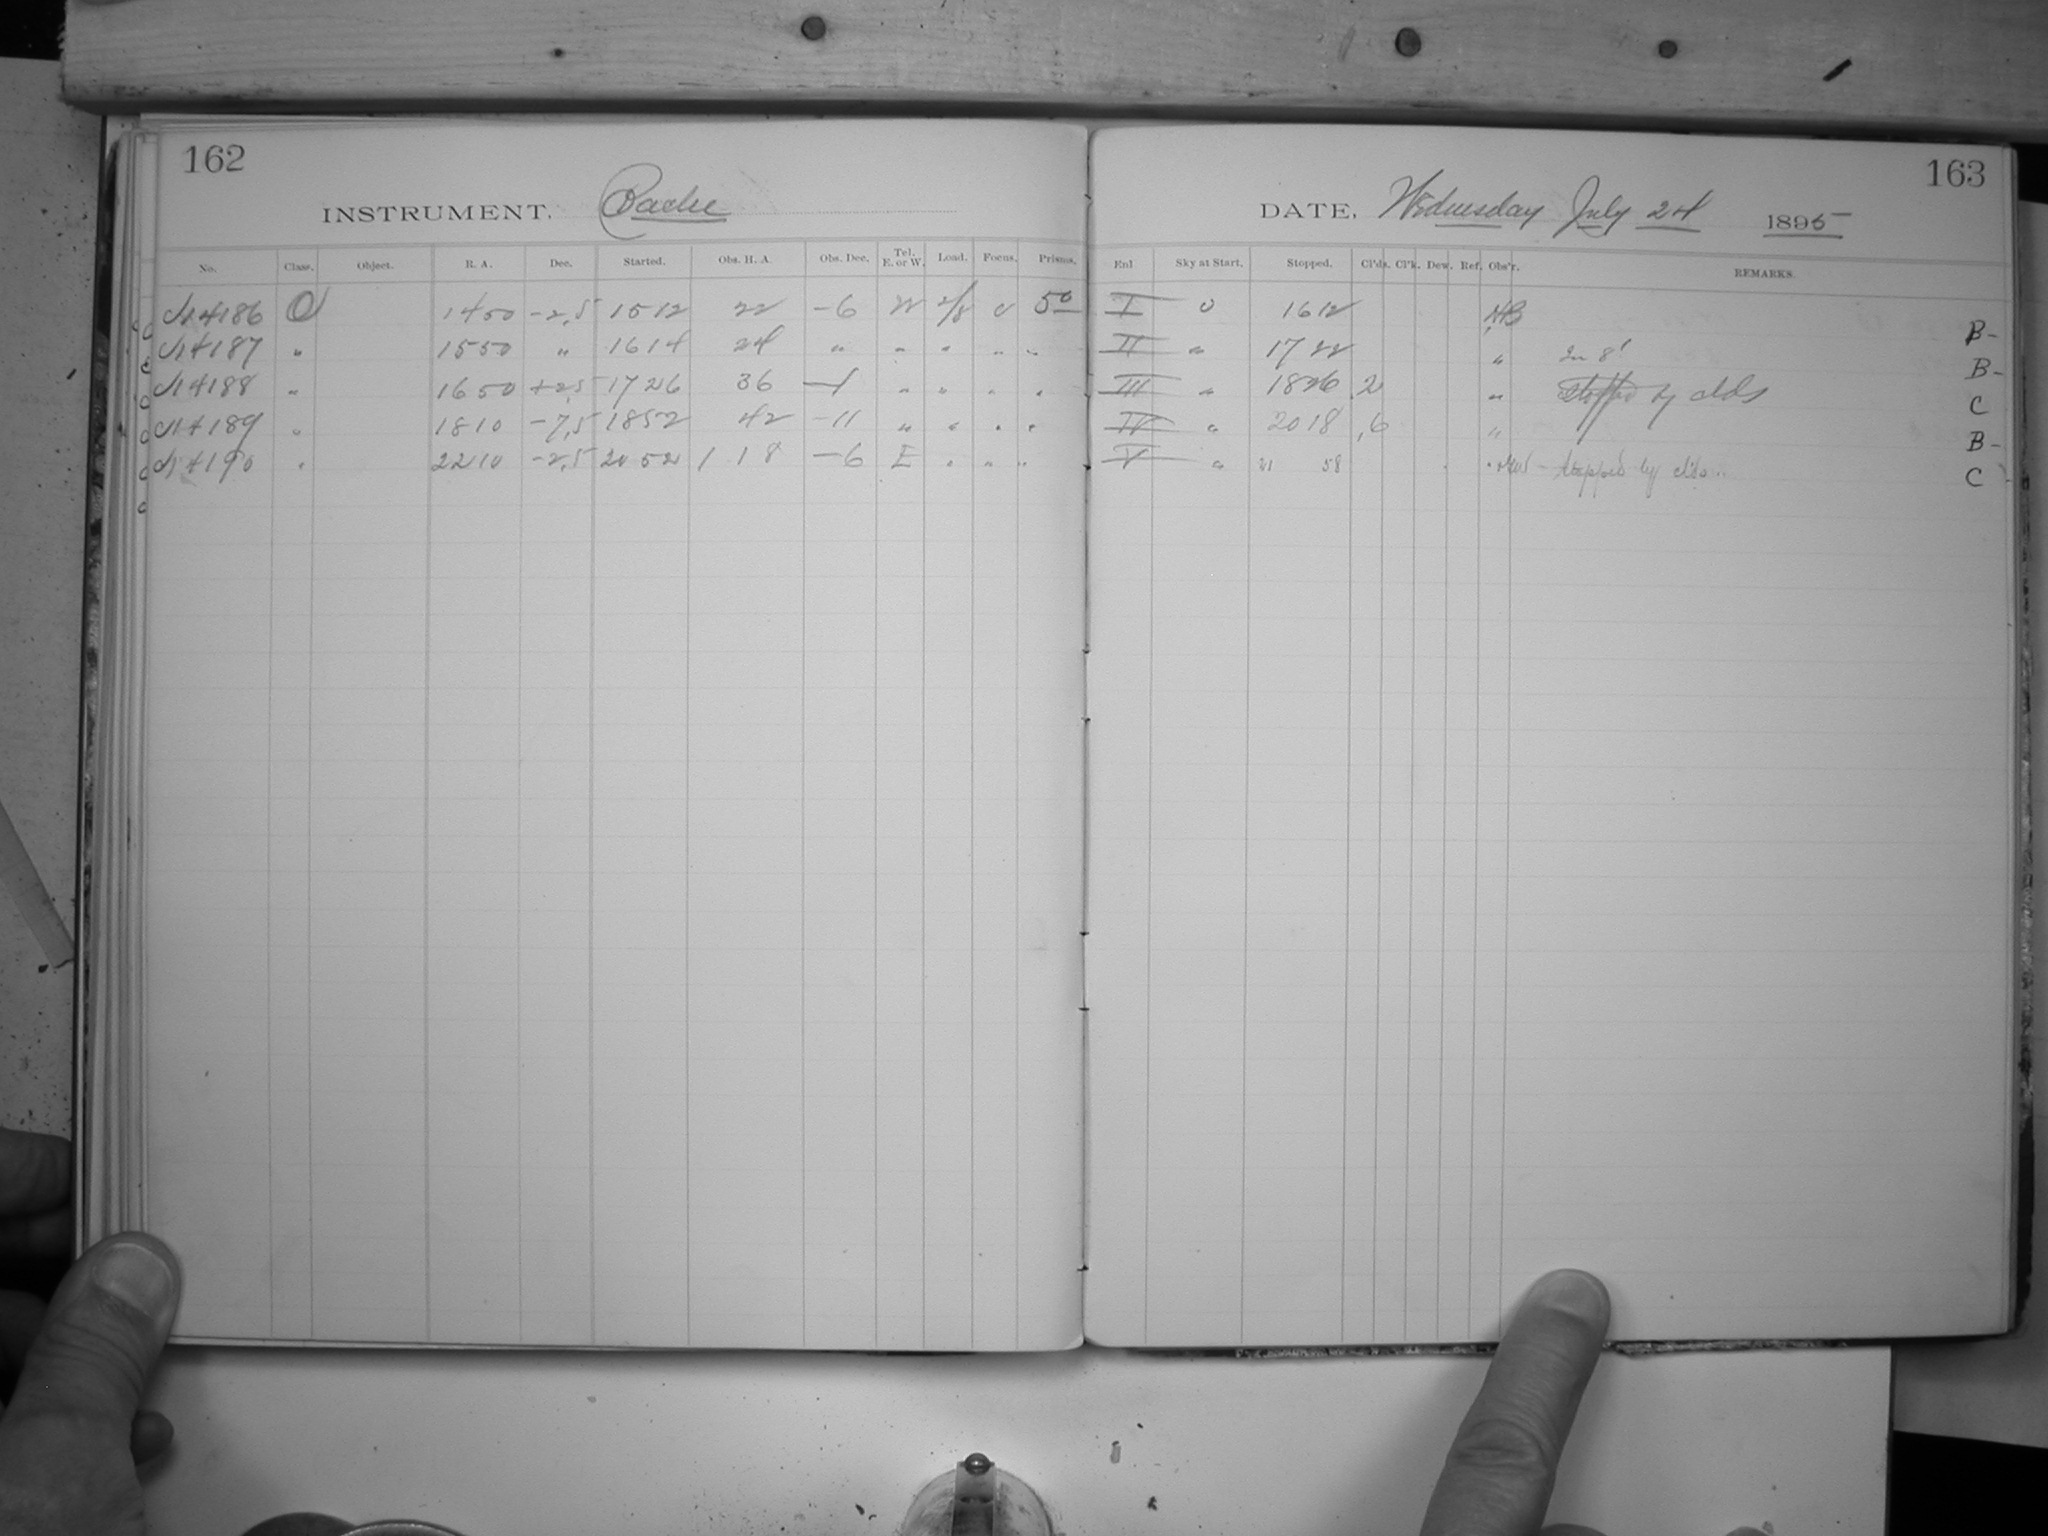 162
INSTRUMENT. Bache
No. Class. Object. R. A. Dec. Started. Obs. H. A. Obs. Dec. Tel. E. or W. Load. Focus. Prisms.
14186 O 1450 -2.5 1512 22 -6 W 2/8 0 50
14187 " 1550 " 1614 24 " " " " "
14188 " 1650 +2.5 1726 36 -1 " " " "
14189 " 1810 -7.5 1852 42 -11 " " " "
14190 " 2210 -2.5 2052 1 18 -6 E " " "
163
DATE, Wednesday July 24 1895
Enl Sky at Start. Stopped. Cl'ds. Cl'k. Dew. Ref. Obs'r. REMARKS.
I 0 1612 B-
II " 1722 " In 8' B-
III " 1826 .2 " Stopped by clds C
IV " 2018 .6 " B-
V " 21 58 Stopped by clds. C